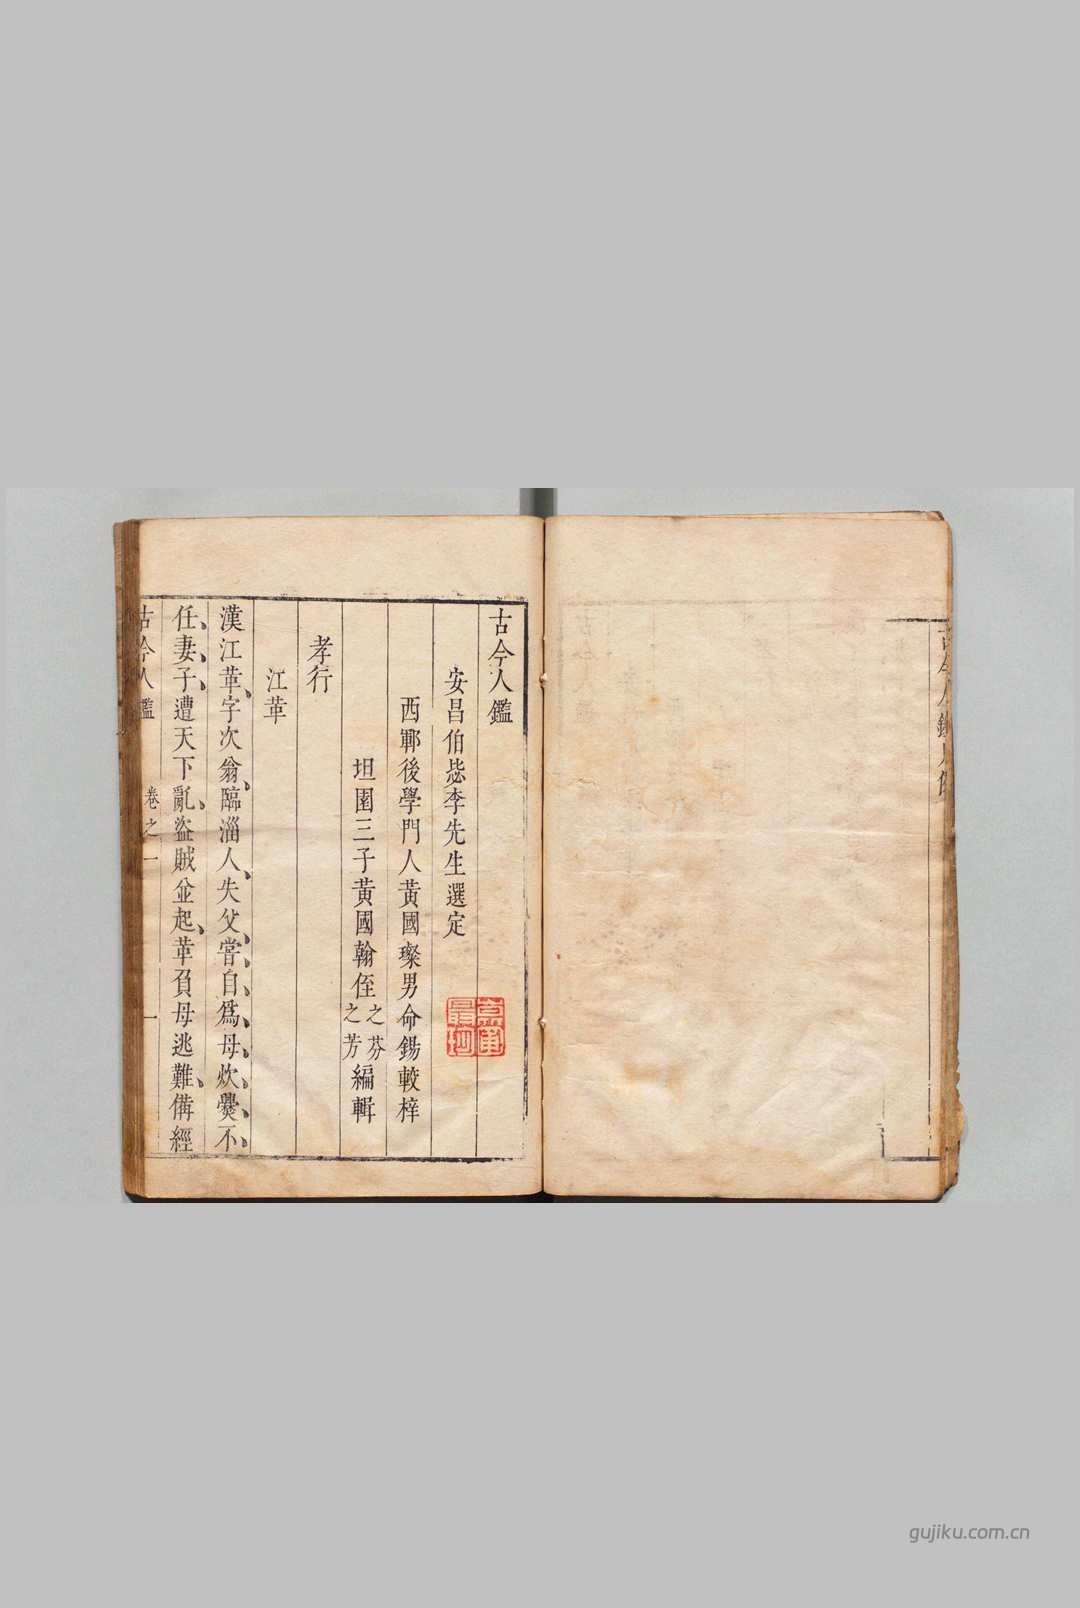 古今人鑑
安昌伯毖李先生選定
西鄆後學門人黃國璨男命錫較梓
坦園三子黃國翰侄之芬之芳編輯
孝行
江革
漢江革字次翁臨淄人失父嘗自爲母炊爨不
任妻子遭天下亂盜賊並起革負母逃難備經
古今人鑑 卷之一 一
gujiku.com.cn